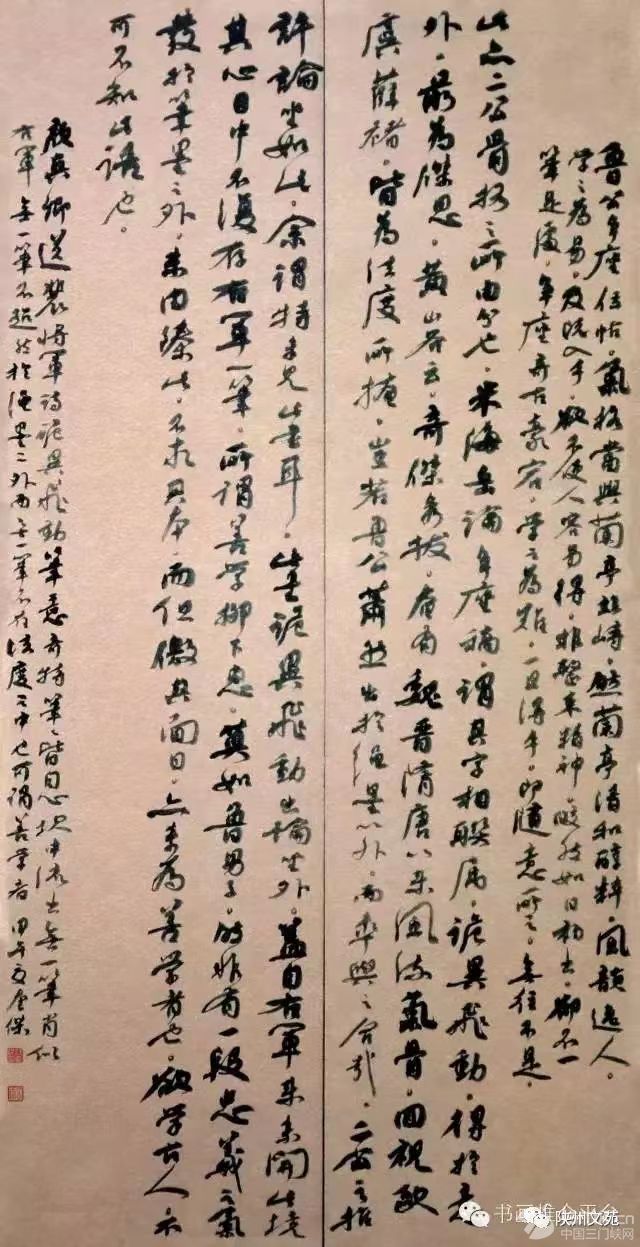 魯公争座位帖，氣格當與蘭亭並峙，然蘭亭清和醇粹，風韻逸人。
学之為易，及既入手，欲不使人容易得，非整束精神，皎然如日初出，卻不一
筆是處。争座奇古豪宕，学之為難，一旦得手，即隨意所之，無往不是。
此亦二公骨格之所由分也。米海岳論争座稿，謂其字相聯屬，詭異飛動，得於意
外，最為傑思。黄山谷云，奇傑秀拔，有魏晋隋唐以来風流氣骨。回視歐
虞薛褚，皆為法度所掩，豈若魯公蕭然出於繩墨以外，而卒與之合哉。二
評論坐如此。余謂特未見此書耳。此書詭異飛動出論坐外。蓋自右軍来未開此境
其心目中不復存右軍一筆。所謂善学柳下惠，莫如魯男子。非有一段忠義之氣
發於筆墨之外，未由臻此。不求其本，而但傚其面目，亦未為善学者也。欲学古人不
可不知此語也。
顔真卿送裴将軍詩詭異飛動筆意奇特筆筆皆自心坎中流出無一筆肖似
右軍無一筆不超然於繩墨之外而無一筆不在法度之中也可謂善学者甲午夏
书画推介平台
陕州文苑
中国三门峡网